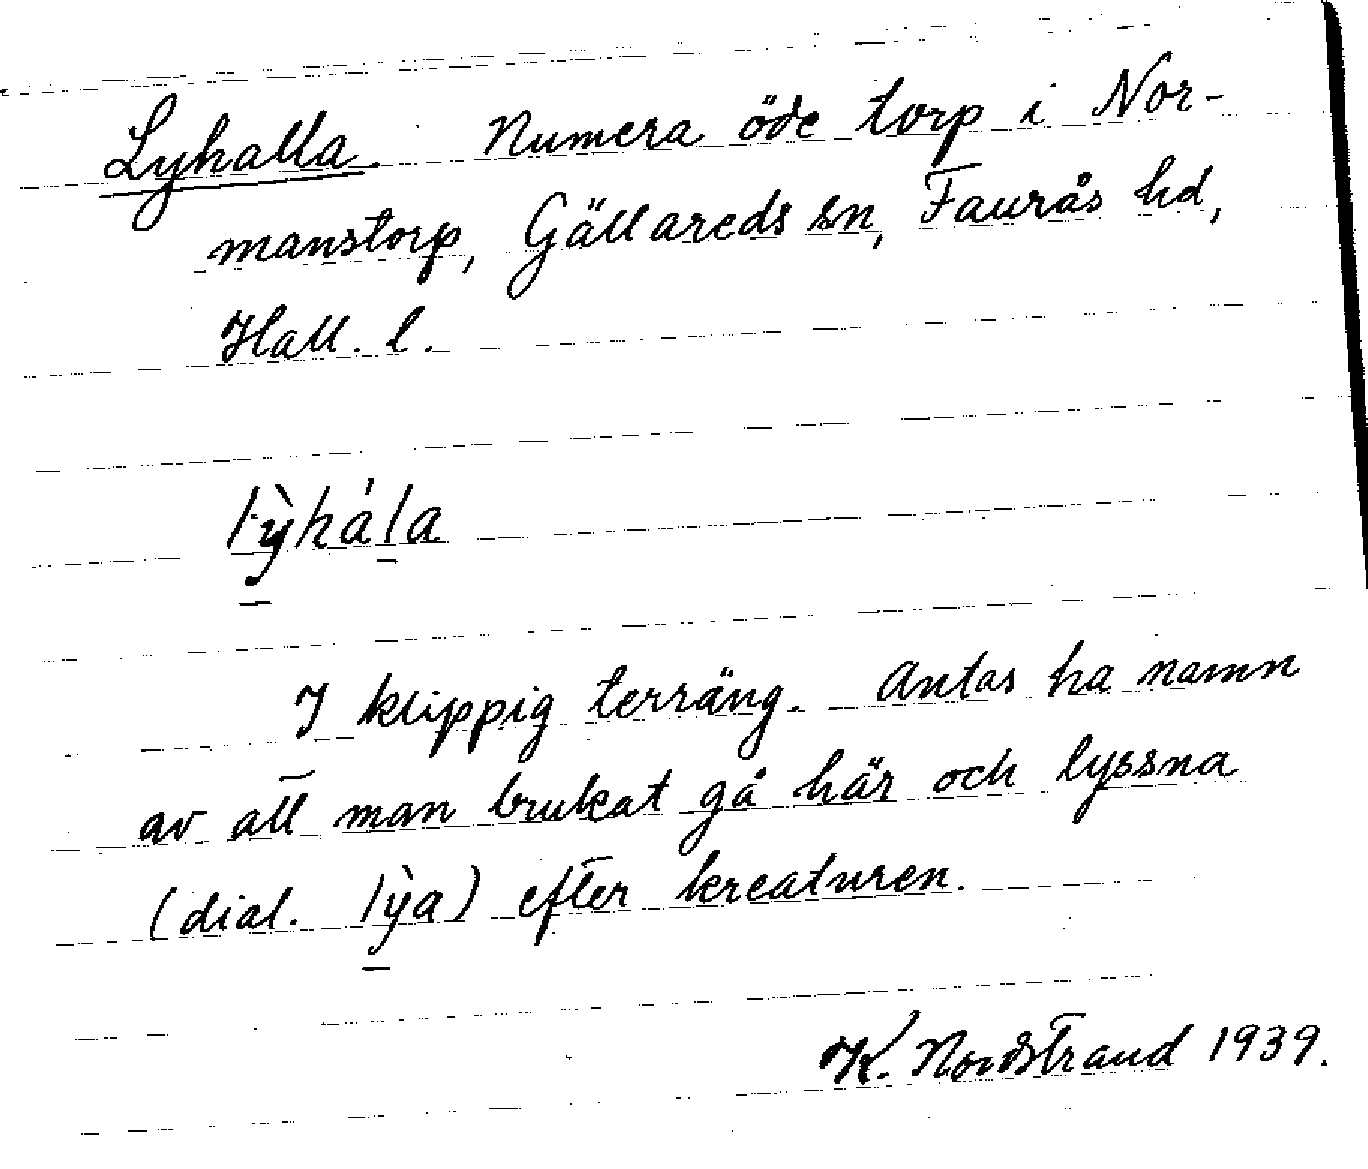 Lyhalla. Numera öde torp i Nor-
manstorp, Gällareds sn, Faurås hd,
Hall. l.
lỳhála
I klippig terräng. Antas ha namn
av att man brukat gå här och lyssna
(dial. lỳa) efter kreaturen.
K. Nordstrand 1939.